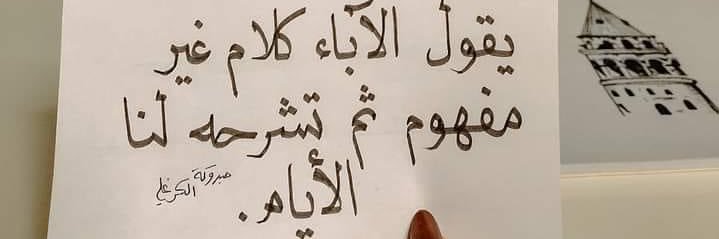 يقول الآباء كلام غير
مفهوم ثم تشرحه لنا
الأيام.